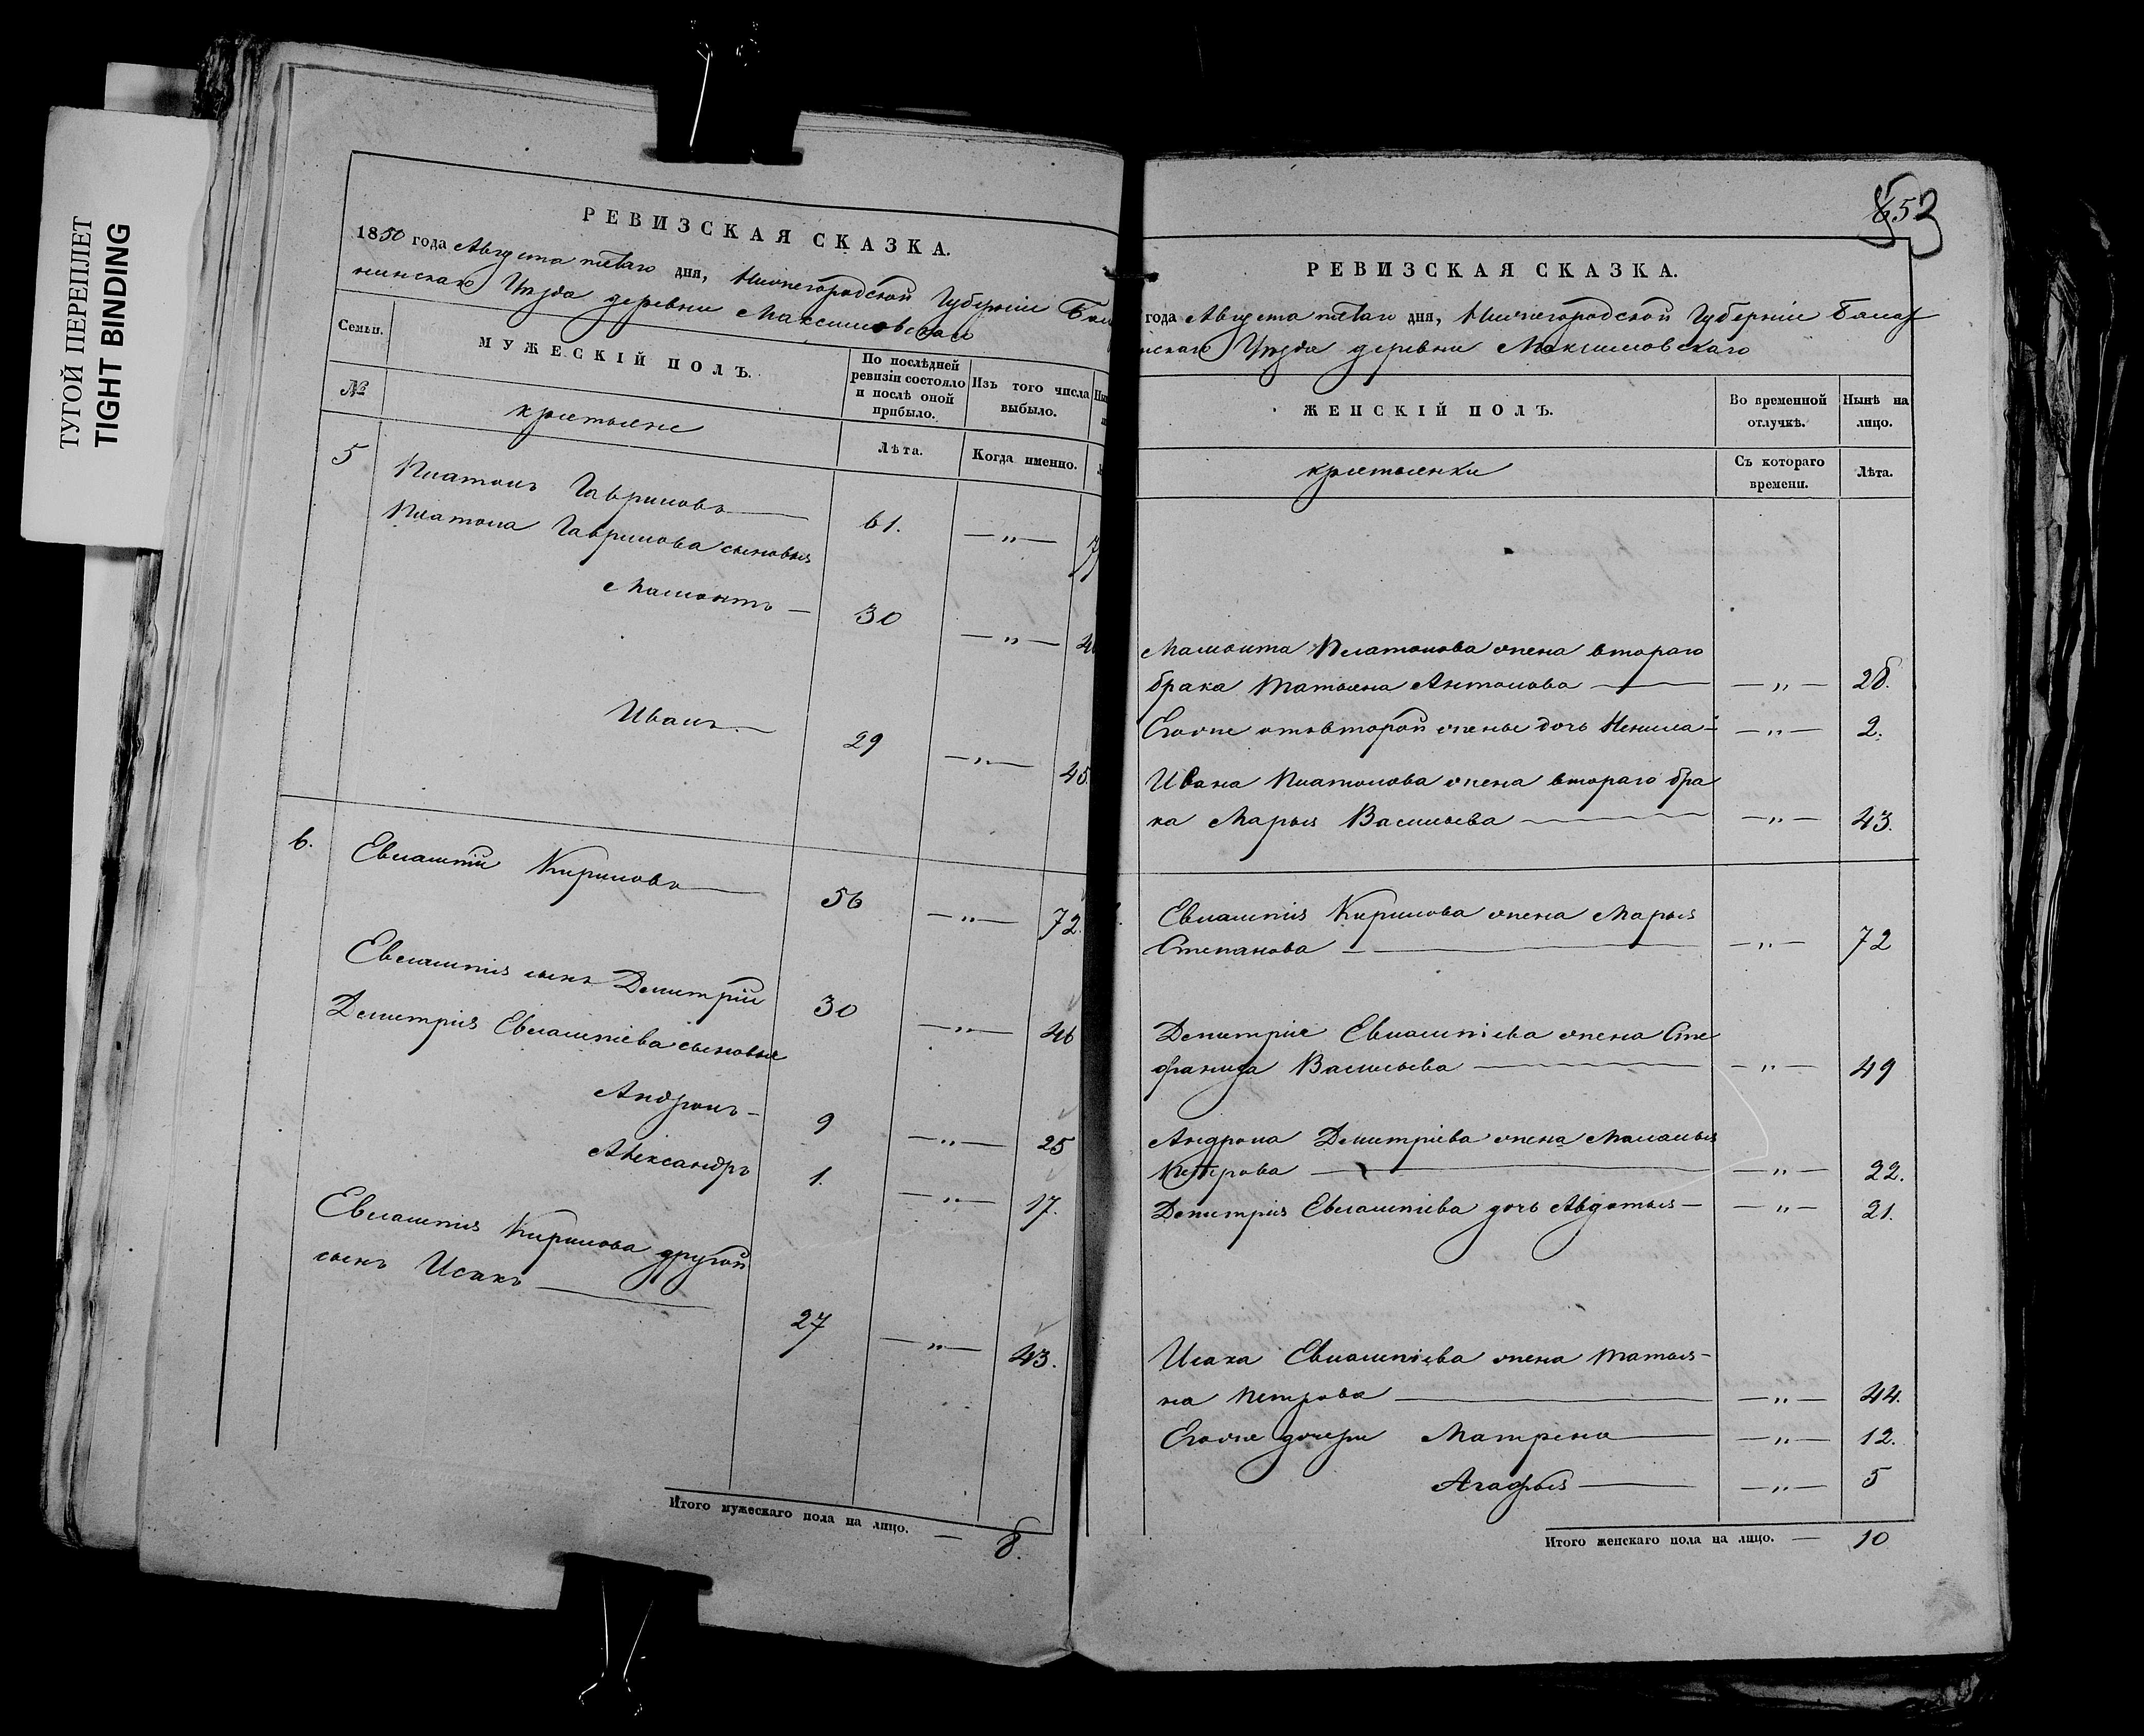 ТУГОЙ ПЕРЕПЛЕТ
TIGHT BINDING
РЕВИЗСКАЯ СКАЗКА.
1850 года Августа пятаго дня, Нижегородской Губерніи Бала
нинскаго Уѣзда деревни Максимовскаго
Семьи.
МУЖЕСКІЙ ПОЛЪ.
По послѣдней ревизіи состояло и послѣ оной прибыло.
Изъ того числа выбыло.
№
крестьяне
Лѣта.
Когда именно.
5
Платонъ Гавриловъ 61. — " — 77
Платона Гаврилова сыновья
Мамонтъ — 30 — " — 46
Иванъ — 29 — " — 45.
6.
Евлампій Кириловъ 56 — " — 72.
Евлампія сынъ Дмитрій 30 — " — 46
Дмитрія Евлампіева сыновья
Андронъ — 9 — " — 25
Александръ 1. — " — 17.
Евлампія Кирилова другой
сынъ Исакъ — 27 — " — 43.
Итого мужескаго пола на лицо. — 8.
653
РЕВИЗСКАЯ СКАЗКА.
года Августа пятаго дня, Нижегородской Губерніи Балах
нскаго Уѣзда деревни Максимовскаго
ЖЕНСКІЙ ПОЛЪ.
Во временной отлучкѣ.
Нынѣ на лицо.
крестьянки
Съ котораго времени.
Лѣта.
Мамонта Платонова жена втораго
брака Татьяна Антонова — — " — 28.
Егоже отъ второй жены дочь Ненила — — " — 2.
Ивана Платонова жена втораго бра
ка Марья Васильева — — " — 43.
Евлампія Кирилова жена Марья
Степанова — — " — 72
Дмитрія Евлампіева жена Сте
фанида Васильева — — " — 49
Андрона Дмитріева жена Маланья
Петрова — — " — 22.
Дмитрія Евлампіева дочь Авдотья — — " — 21.
Исака Евлампіева жена Татья-
на Петрова — — " — 44.
Егоже дочери Матрена — — " — 12.
Агафья — — " — 5
Итого женскаго пола на лицо. — 10